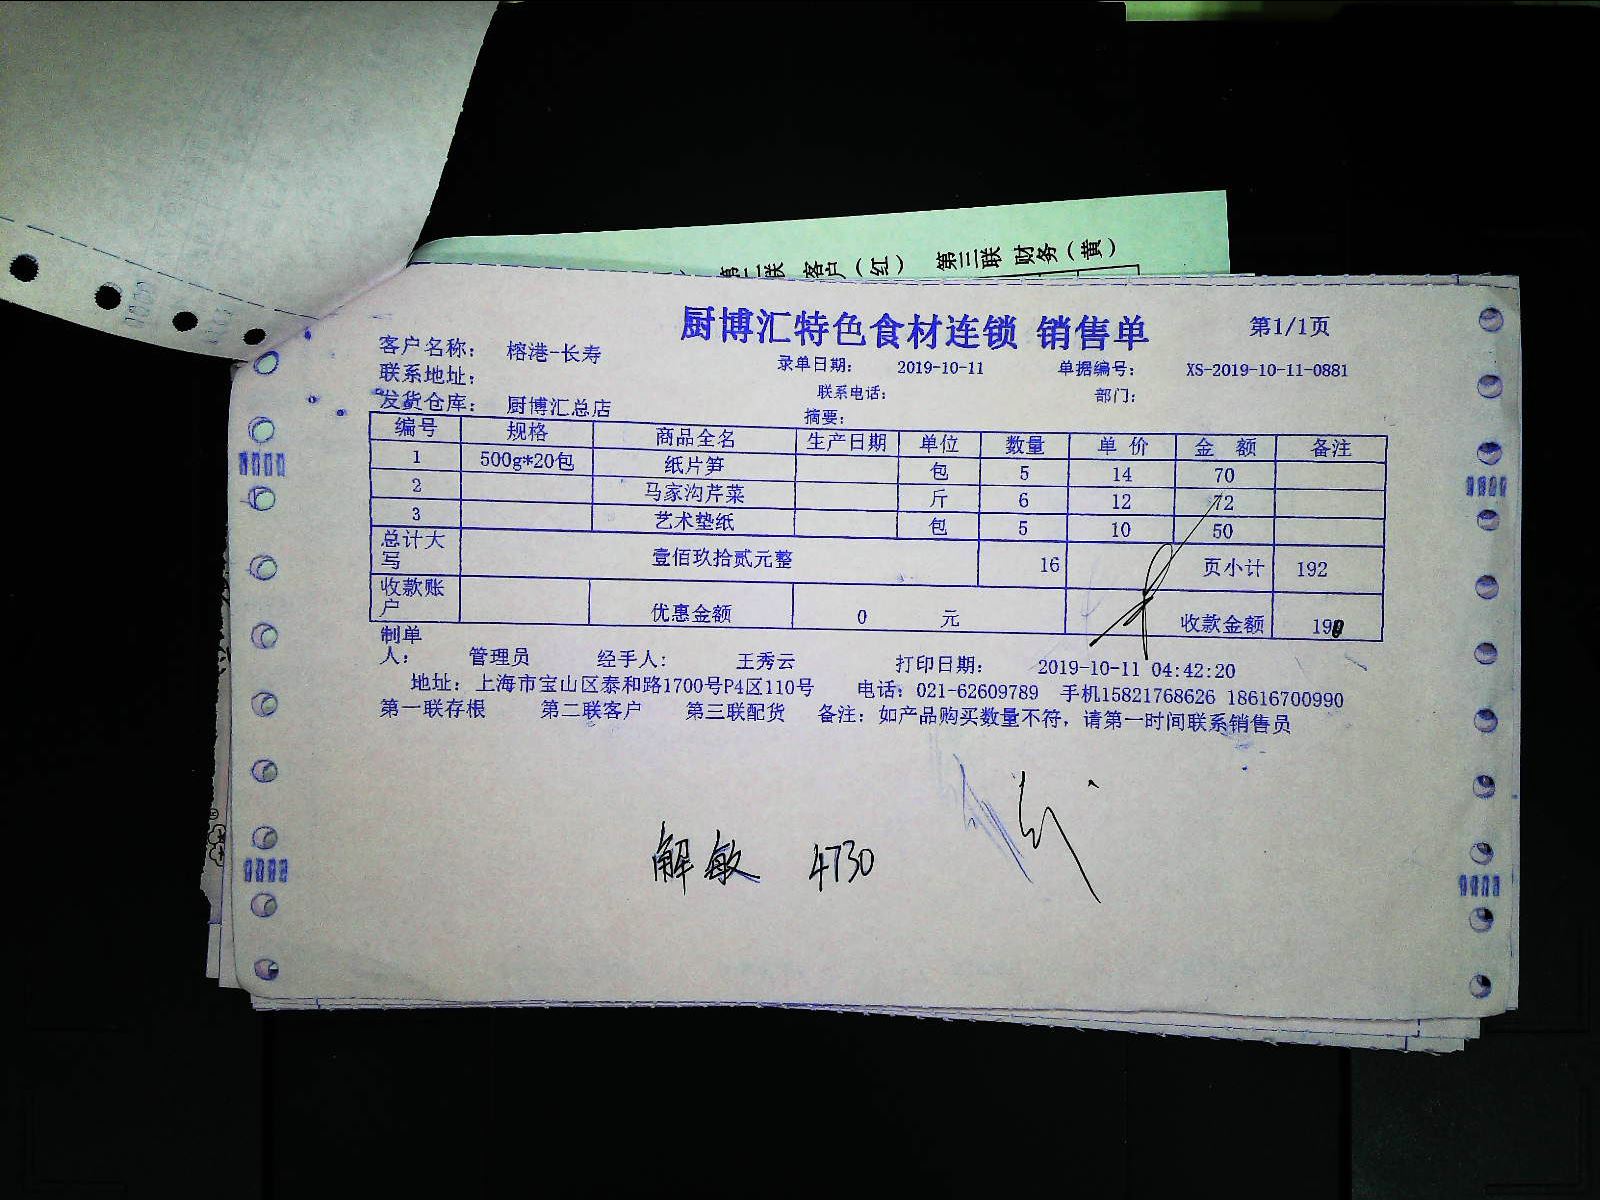 第二联 客户（红） 第三联 财务（黄）
厨博汇特色食材连锁 销售单 第1/1页
客户名称： 榕港-长寿 录单日期： 2019-10-11 单据编号： XS-2019-10-11-0881
联系地址： 联系电话： 部门：
发货仓库： 厨博汇总店 摘要：
编号 规格 商品全名 生产日期 单位 数量 单 价 金 额 备注
1 500g*20包 纸片笋 包 5 14 70
2 马家沟芹菜 斤 6 12 72
3 艺术垫纸 包 5 10 50
总计大写 壹佰玖拾贰元整 16 页小计 192
收款账户 优惠金额 0 元 收款金额
制单人： 管理员 经手人： 王秀云 打印日期： 2019-10-11 04:42:20
地址：上海市宝山区泰和路1700号P4区110号 电话：021-62609789 手机15821768626 18616700990
第一联存根 第二联客户 第三联配货 备注：如产品购买数量不符，请第一时间联系销售员
解敏 4730